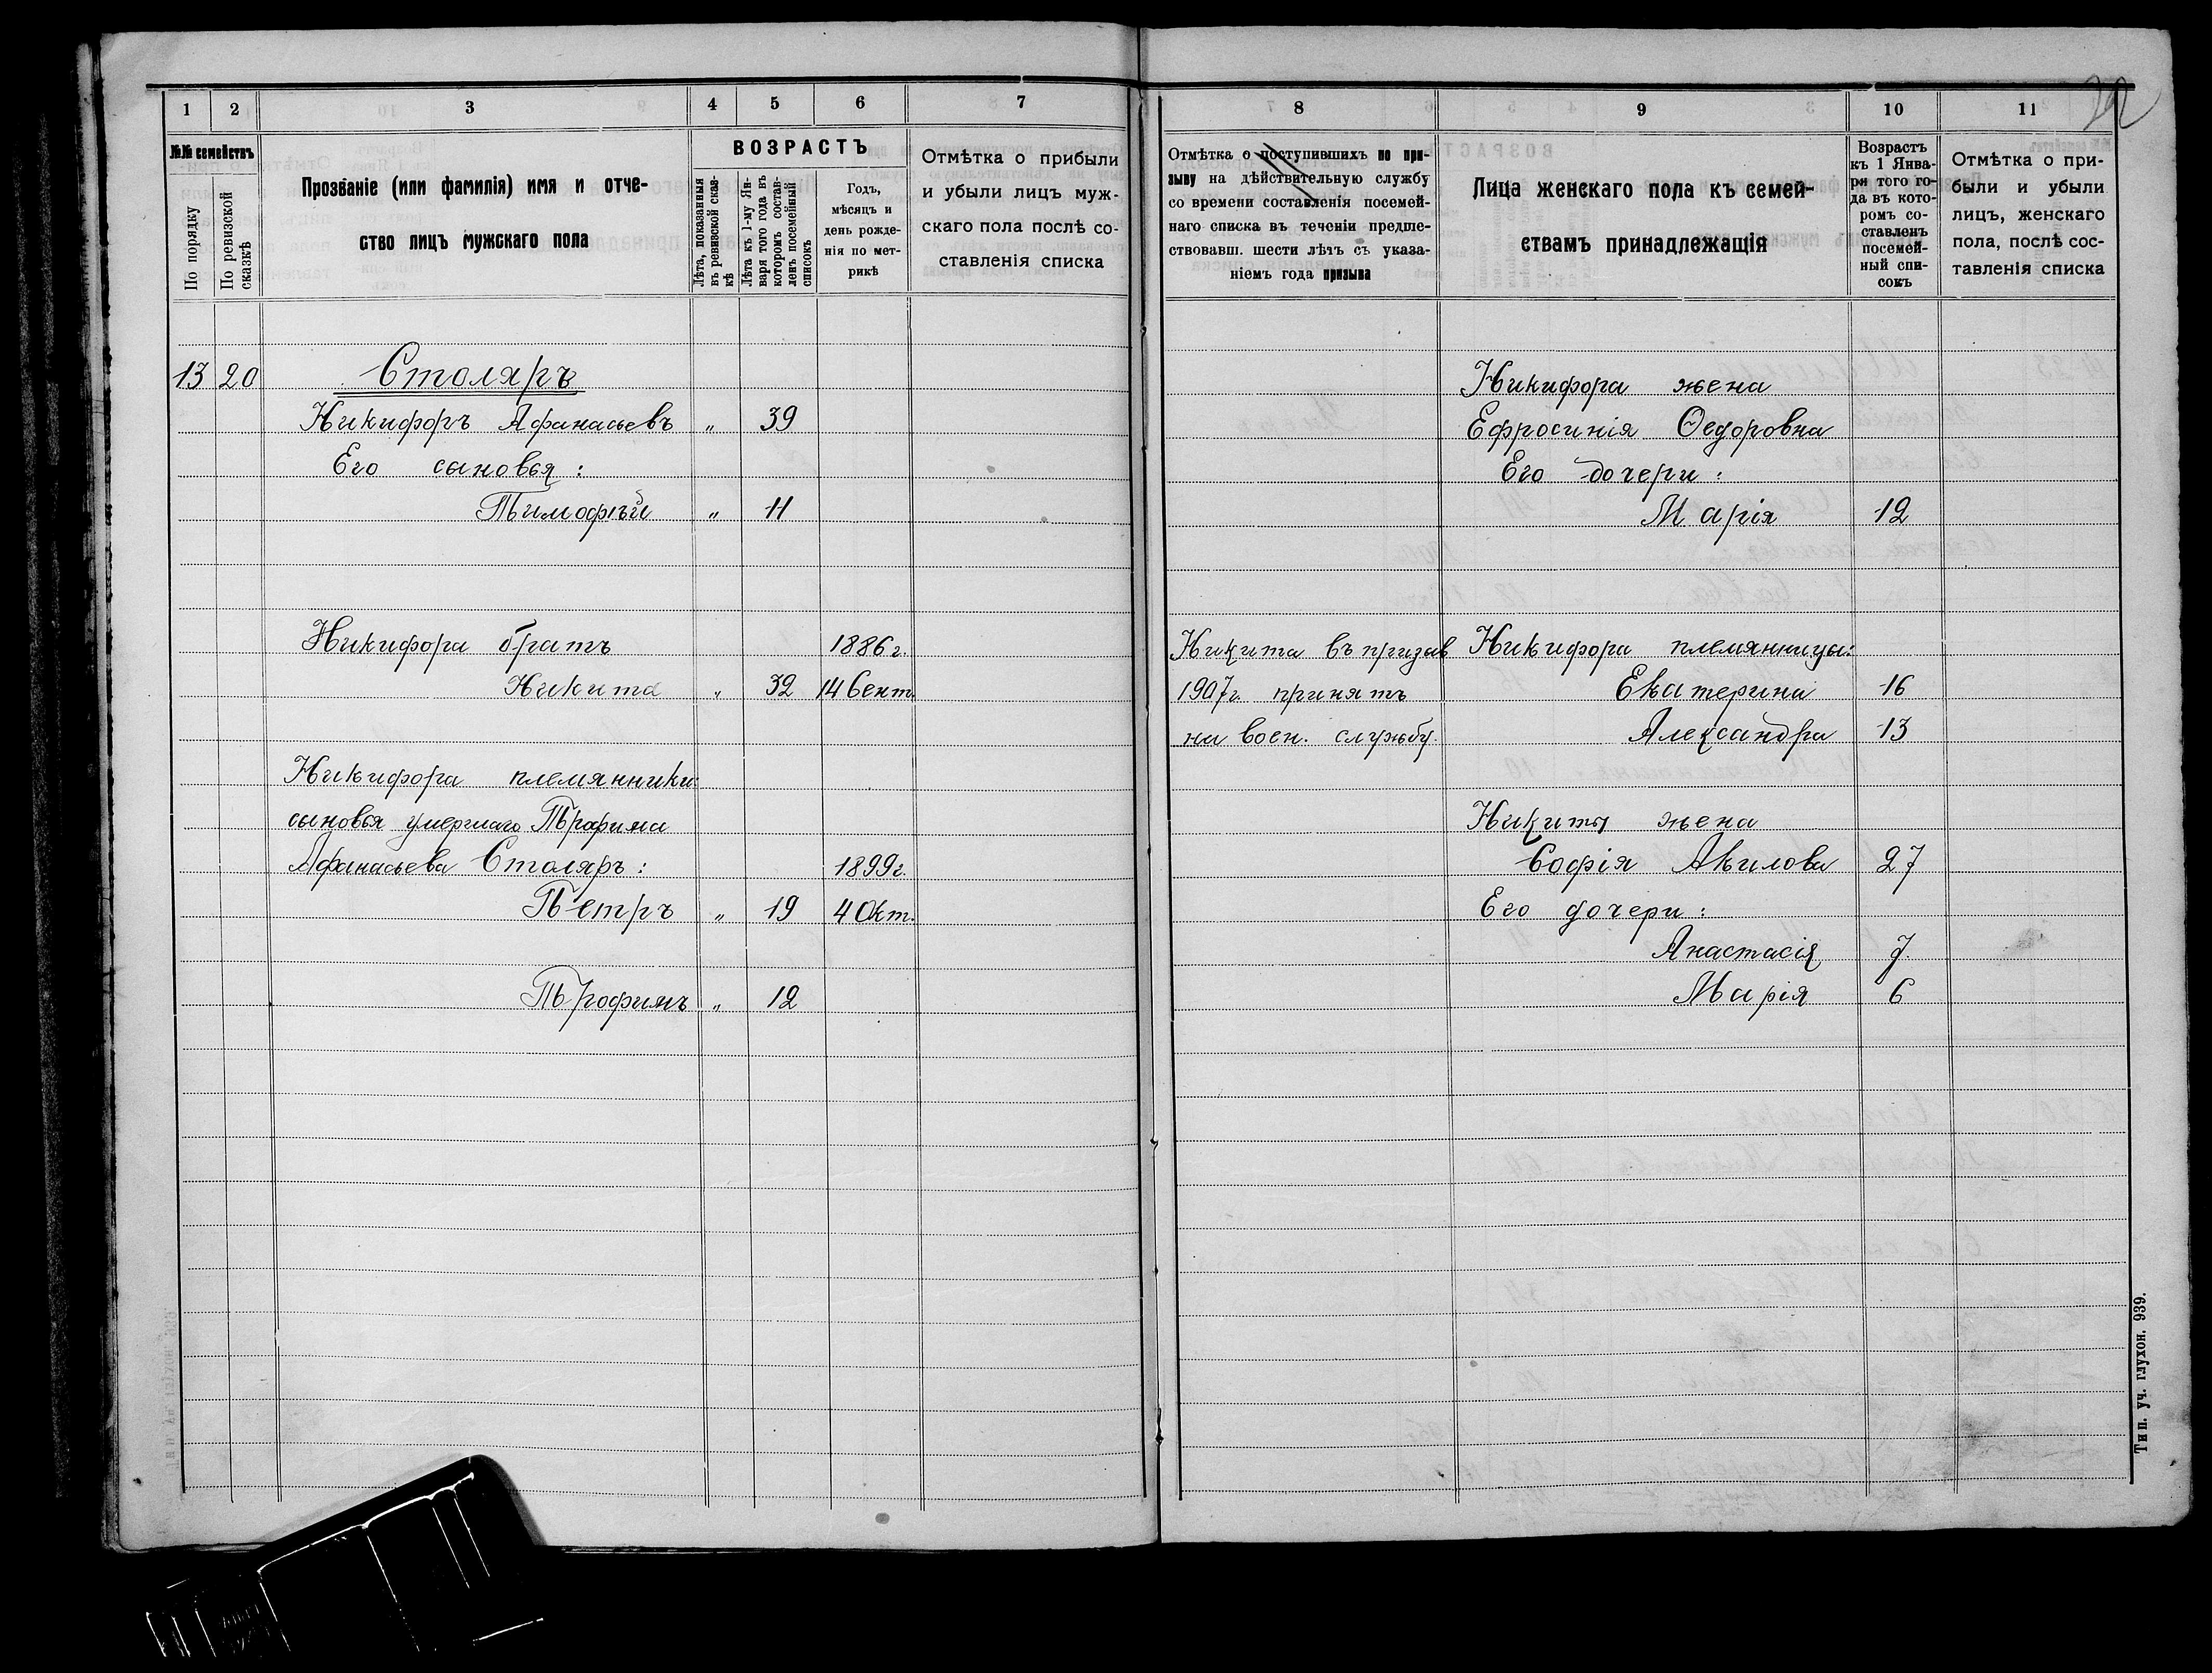 1 2 3 4 5 6 7
№№ семействъ
По порядку
По ревизской сказкѣ
Прозваніе (или фамилія) имя и отче-
ство лицъ мужскаго пола
ВОЗРАСТЪ
Лѣта, показанныя въ ревизской сказ-кѣ
Лѣта къ 1-му Ян-варя того года въ которомъ состав-ленъ посемейный списокъ
Годъ,
мѣсяцъ и
день рожде-
нія по мет-
рикѣ
Отмѣтка о прибыли
и убыли лицъ муж-
скаго пола послѣ со-
ставленія списка
13 20 Столяръ
Никифоръ Афанасьевъ " 39
Его сыновья:
Тимофѣй " 11
Никифора братъ 1886 г.
Никита " 32 14 Сент.
Никифора племянники:
сыновья умершаго Трофима
Афанасьева Столяръ: 1899 г.
Петръ " 19 4 Окт.
Трофимъ " 12
8 9 10 11
Отмѣтка о поступившихъ по при-
зыву на дѣйствительную службу
со времени составленія посемей-
наго списка въ теченіи предше-
ствовавш. шести лѣтъ съ указа-
ніемъ года призыва
Лица женскаго пола къ семей-
ствамъ принадлежащія
Возрастъ
къ 1 Янва-
ря того го-
да въ кото-
ромъ со-
ставленъ
посемей-
ный спи-
сокъ
Отмѣтка о при-
были и убыли
лицъ, женскаго
пола, послѣ сос-
тавленія списка
Никифора жена
Ефросинія Ѳедоровна
Его дочери:
Марія 12
Никита въ призыв Никифора племянницы:
1907 г. принятъ Екатерина 16
на воен. службу. Александра 13
Никиты жена
Софія Акилова 27
Его дочери:
Анастасія 7
Марія 6
Тип. уч. глухон. 939.